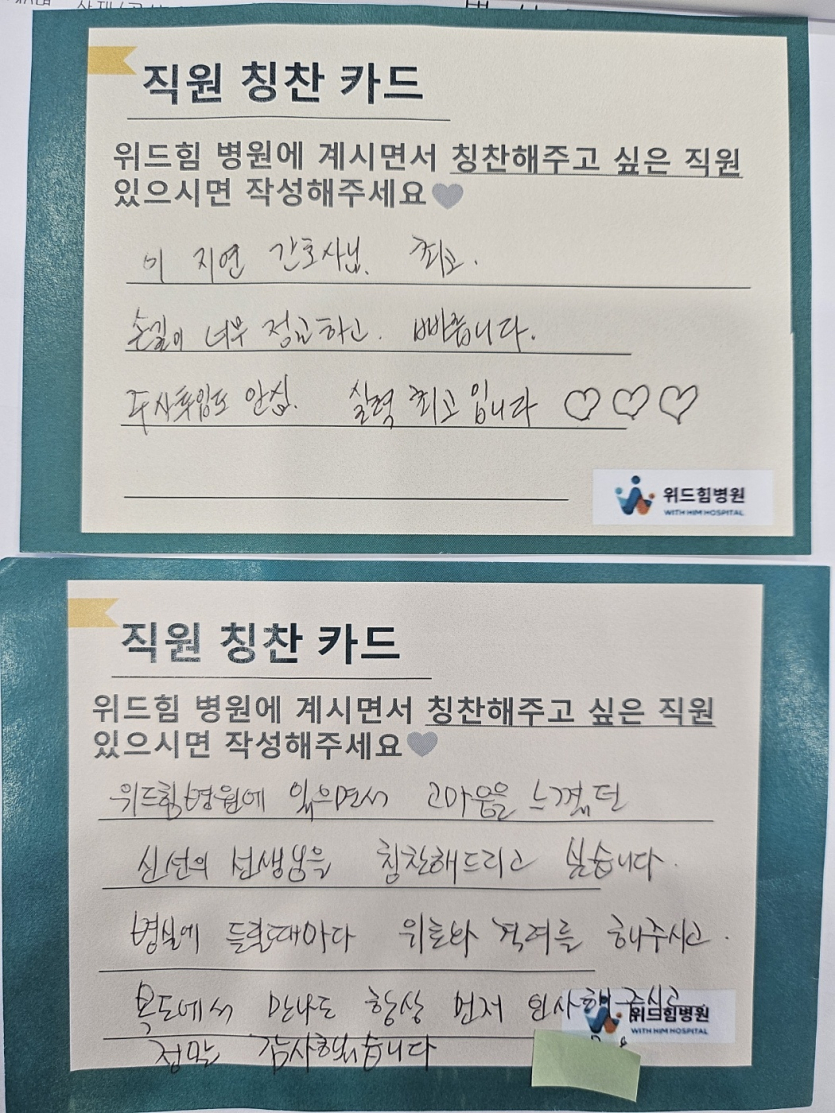 직원 칭찬 카드
위드힘 병원에 계시면서 칭찬해주고 싶은 직원
있으시면 작성해주세요
이 지연 간호사님. 최고.
손길이 너무 정교하고. 빠릅니다.
주사후임도 안심. 실력 최고입니다 ♡♡♡
위드힘병원
WITH HIM HOSPITAL
직원 칭찬 카드
위드힘 병원에 계시면서 칭찬해주고 싶은 직원
있으시면 작성해주세요
위드힘병원에 있으면서 고마움을 느꼈던
신선의 선생님을 칭찬해드리고 싶습니다.
병실에 들릴때마다 위로와 격려를 해주시고.
복도에서 만나도 항상 먼저 인사해주시고
위드힘병원
WITH HIM HOSPITAL
정말 감사했습니다